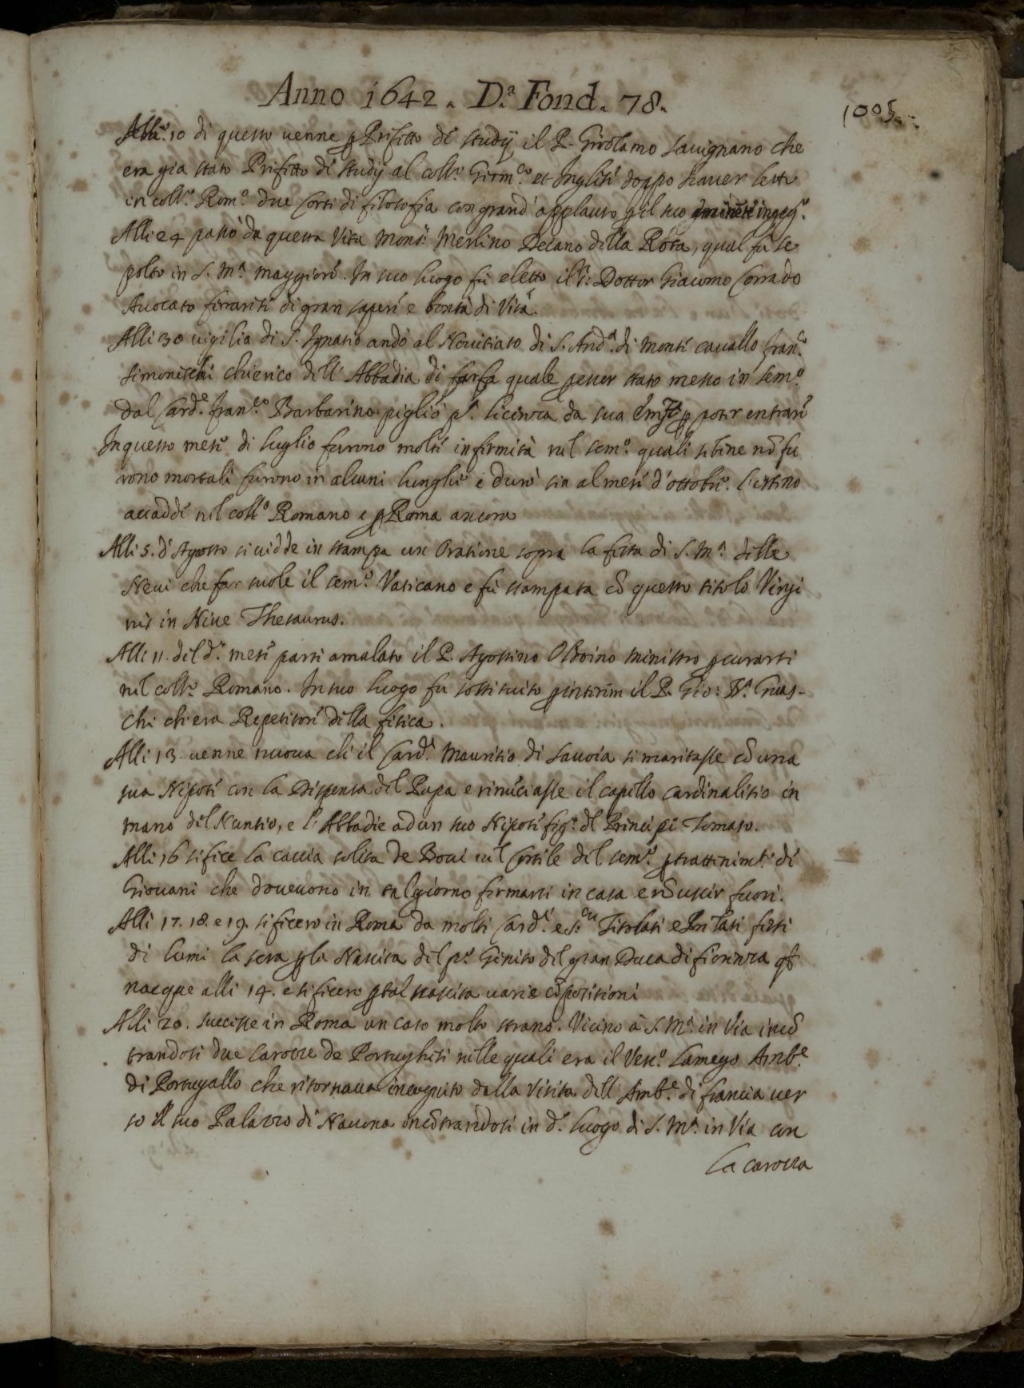 Anno 1642. D.a Fond. 78.
1005.
Alli 10 di questo venne p Prefetto de studij il P. Girolamo Savignano che
era gia stato Prefetto de studij al coll.o Germ.co et Inglese doppo haver letti
in coll.o Rom.o due corsi di filosofia con grand' applauso p il suo
Alli 24 passò da questa Vita Mons.r Merlino Decano della Rota, qual fù se
polto in S. M.a Maggiore. In suo luogo fu eletto il S.r Dottor Giacomo Corrado
Avocato ferrarese di gran sapere e bontà di Vita.
Alli 30 vigilia di S. Ignatio andò al Novitiato di S. And.a di Monte cavallo Fran.co
Simonetti chierico dell' Abbadia di farfa quale p esser stato messo in sem.o
dal Card.e Fran.co Barbarino pigliò p.a licenza da sua p poter entrare
In questo mese di luglio furono molte infirmità nel sem.o quali se bene nō fu
rono mortali furono in alcuni lunghe e durò sin al mese d'ottobre. l'istesso
accadde nel coll.o Romano e p Roma ancora
Alli 5. d'Agosto si vidde in stampa un Oratione sopra la festa di S. M.a delle
Nevi che far suole il sem.o Vaticano e fù stampata cō questo titolo Virgi
nis in Nive Thesaurus.
Alli 11. del d.o mese parti amalato il P. Agostino Oldoino ministro p curarsi
nel coll.o Romano. In suo luogo fu sostituito p interim il P. Gio: B.a Guas-
chi ch'era Repetitore della fisica.
Alli 13 venne nuova che il Card.e Mauritio di Savoia si maritasse cō una
sua Nipote con la Dispensa del Papa e rinūciasse il capello cardinalitio in
mano del Nuntio, e l'Abbadie ad un suo Nipote fig.o del Principe Tomaso.
Alli 16 si fece la caccia solita de Bovi nel Cortile del sem.o p trattenim.to de
Giovani che dovevono in tal giorno fermarsi in casa e nō uscir fuori.
Alli 17. 18. e 19. si fecero in Roma da molti Card.i e S.ri Titolati e Prelati feste
di lumi la sera p la Nascita del p.o Genito del gran Duca di fiorenza
nacque alli 14. e si fecero p tal nascita varie cōpositioni
Alli 20. successe in Roma un caso molto strano. Vicino à S. M.a in Via incō
trandosi due Carozze de Portughesi nelle quali era il Vesc.o Lamego Amb.e
di Portugallo che ritornava incognito dalla Visita dell' Amb.e di francia ver
so il suo Palazzo di Navona incōtrandosi in d.o luogo di S. M.a in Via con
la carozza